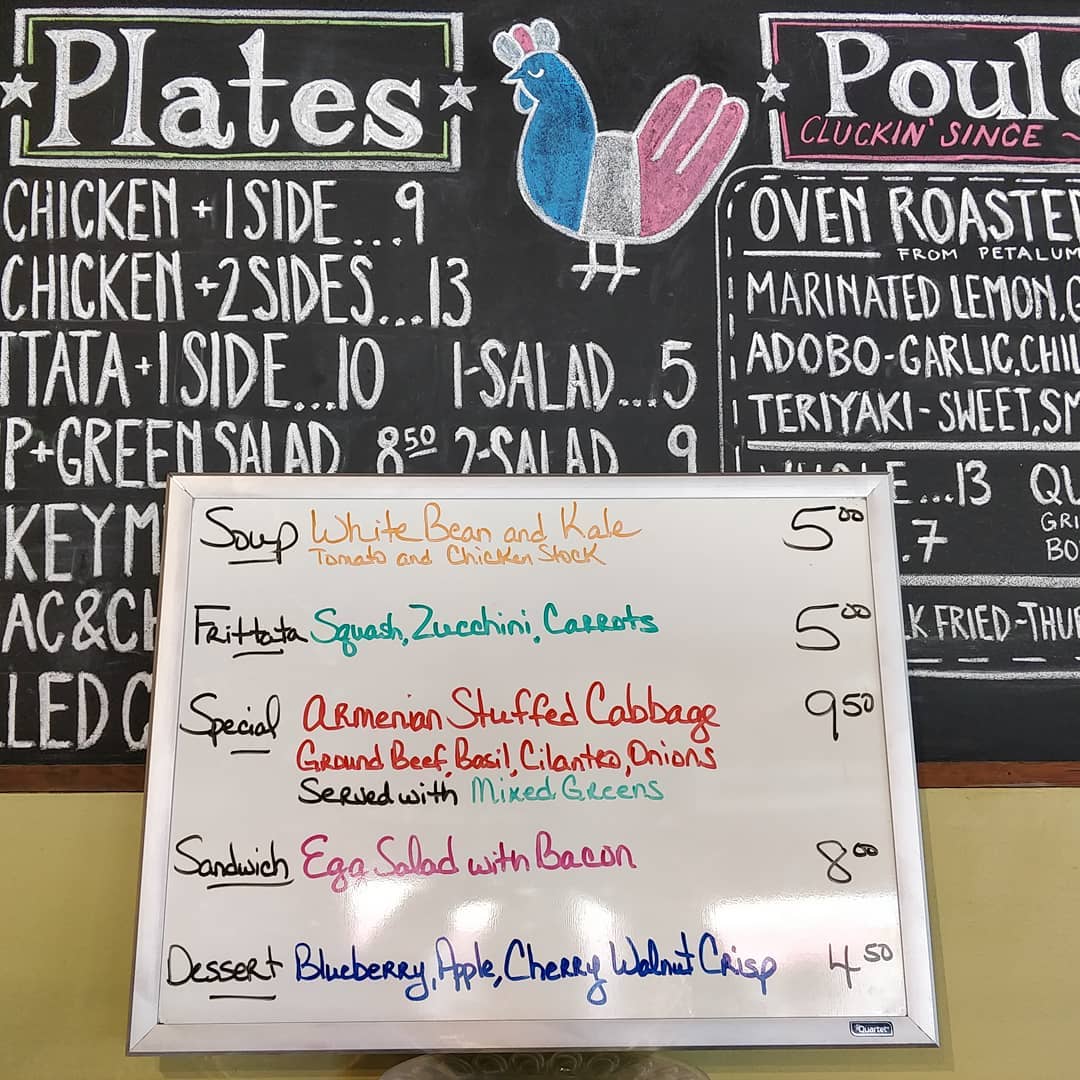 Plates
CHICKEN + 1 SIDE...9
CHICKEN + 2 SIDES...13
TTATA + 1 SIDE...10
P + GREEN SALAD 8 50
KEY M
AC & CH
LED
1-SALAD...5
2-SALAD 9
Poul
CLUCKIN' SINCE ~
OVEN ROASTE
FROM PETALUM
MARINATED LEMON,
ADOBO-GARLIC, CHIL
TERIYAKI - SWEET, SM
E...13 QU
.7 GRI
BO
K FRIED ~ THU
Soup White Bean and Kale 5 00
Tomato and Chicken Stock
Frittata Squash, Zucchini, Carrots 5 00
Special Armenian Stuffed Cabbage 9 50
Ground Beef, Basil, Cilantro, Onions
Served with Mixed Greens
Sandwich Egg Salad with Bacon 8 00
Dessert Blueberry, Apple, Cherry Walnut Crisp 4 50
Quartet